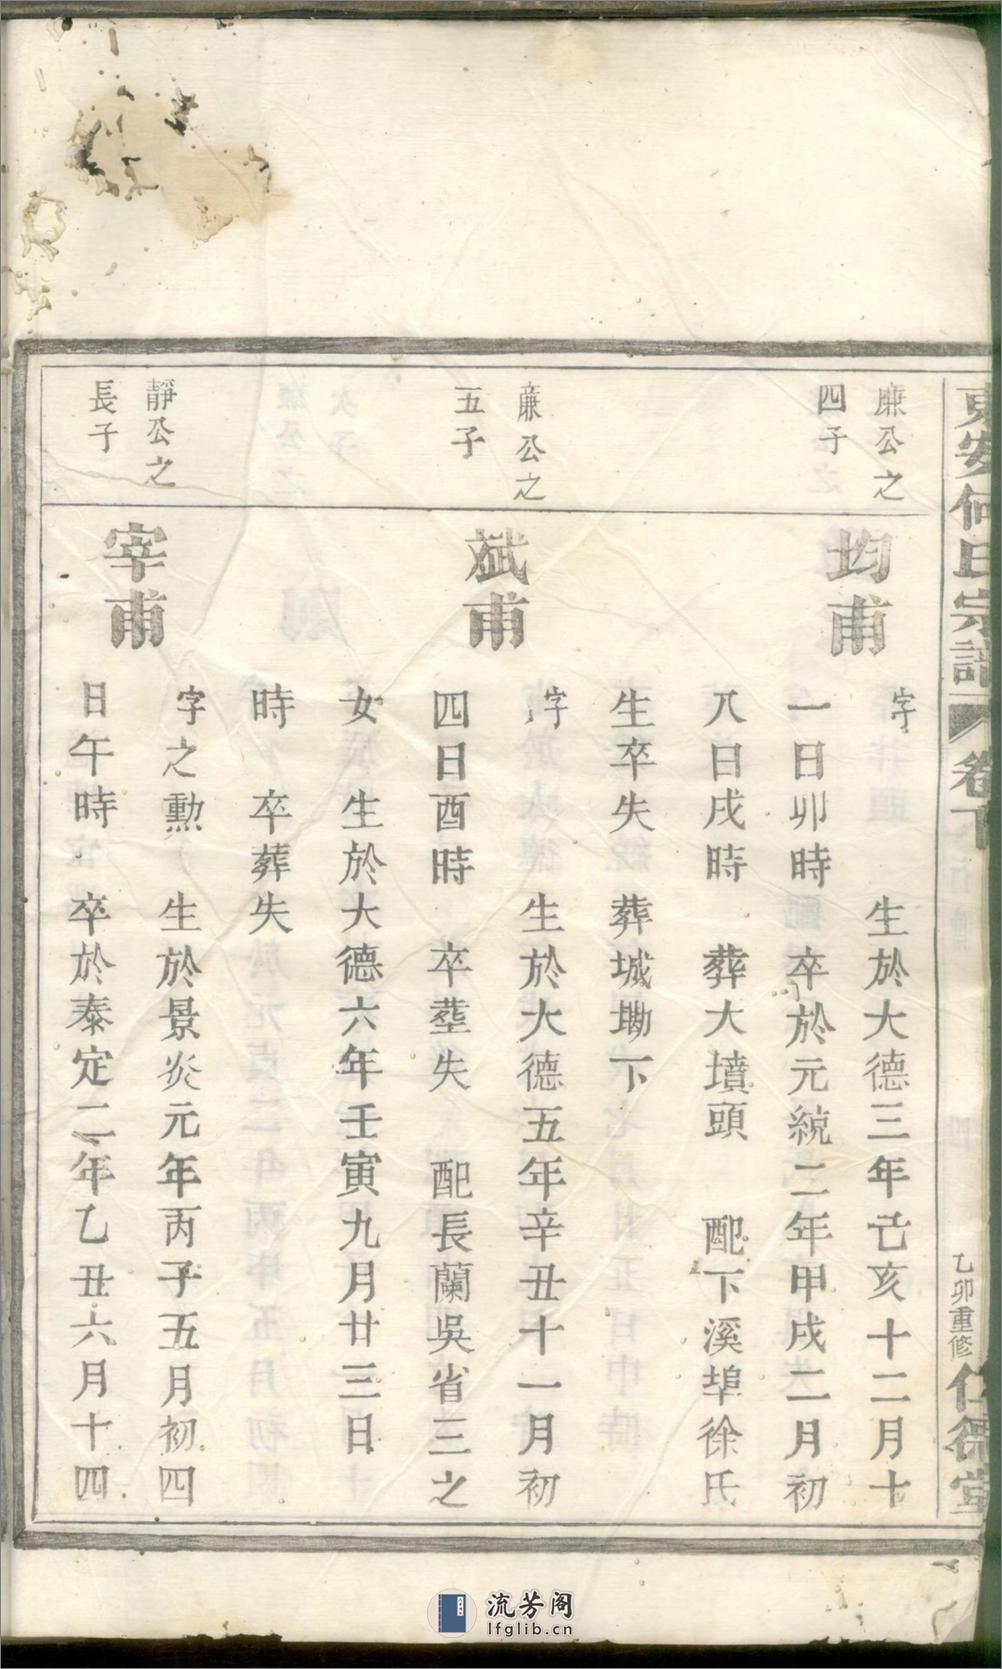 東安何氏宗譜 卷下 乙卯重修 仁德堂
廉公之
四子
均甫
字 生於大德三年己亥十二月十
一日卯時 卒於元統二年甲戌二月初
八日戌時 葬大墳頭 配下溪埠徐氏
生卒失 葬城塢下
廉公之
五子
斌甫
字 生於大德五年辛丑十一月初
四日酉時 卒塟失 配長蘭吳省三之
女 生於大德六年壬寅九月廿三日
時 卒葬失
靜公之
長子
宰甫
字之勲 生於景炎元年丙子五月初四
日午時 卒於泰定二年乙丑六月十四
流芳阁
lfglib.cn